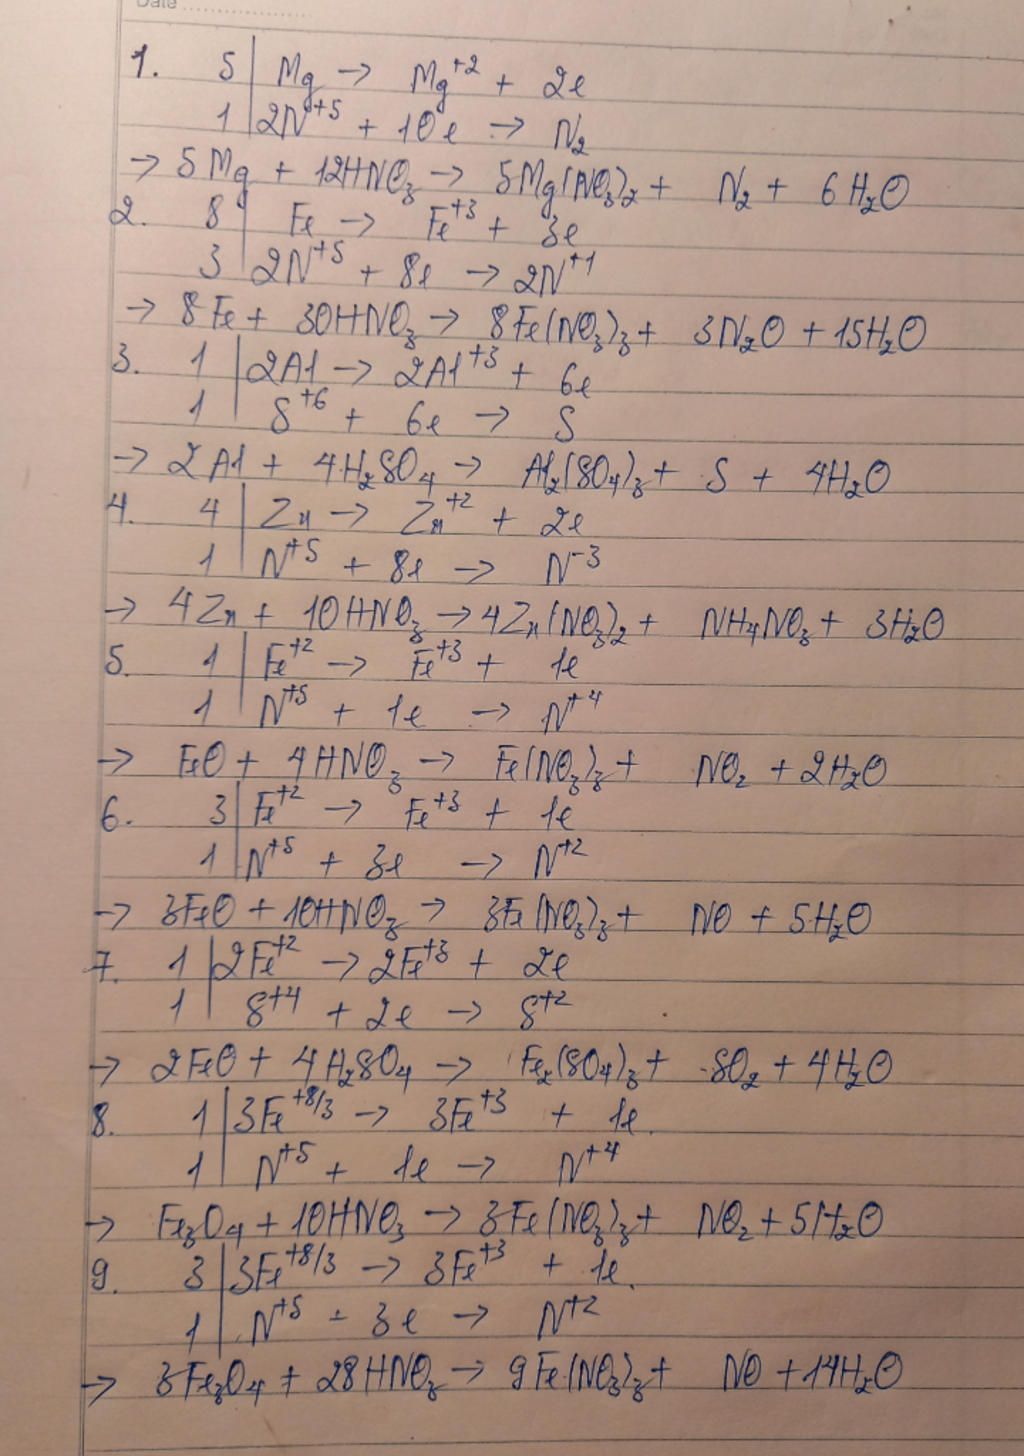 Date
1. 5 | Mg → Mg⁺² + 2e
1 | 2N⁺⁵ + 10e → N₂
→ 5Mg + 12HNO₃ → 5Mg(NO₃)₂ + N₂ + 6H₂O
2. 8 | Fe → Fe⁺³ + 3e
3 | 2N⁺⁵ + 8e → 2N⁺¹
→ 8Fe + 30HNO₃ → 8Fe(NO₃)₃ + 3N₂O + 15H₂O
3. 1 | 2Al → 2Al⁺³ + 6e
1 | S⁺⁶ + 6e → S
→ 2Al + 4H₂SO₄ → Al₂(SO₄)₃ + S + 4H₂O
4. 4 | Zn → Zn⁺² + 2e
1 | N⁺⁵ + 8e → N⁻³
→ 4Zn + 10HNO₃ → 4Zn(NO₃)₂ + NH₄NO₃ + 3H₂O
5. 1 | Fe⁺² → Fe⁺³ + 1e
1 | N⁺⁵ + 1e → N⁺⁴
→ FeO + 4HNO₃ → Fe(NO₃)₃ + NO₂ + 2H₂O
6. 3 | Fe⁺² → Fe⁺³ + 1e
1 | N⁺⁵ + 3e → N⁺²
→ 3FeO + 10HNO₃ → 3Fe(NO₃)₃ + NO + 5H₂O
7. 1 | 2Fe⁺² → 2Fe⁺³ + 2e
1 | S⁺⁴ + 2e → S⁺²
→ 2FeO + 4H₂SO₄ → Fe₂(SO₄)₃ + SO₂ + 4H₂O
8. 1 | 3Fe⁺⁸/³ → 3Fe⁺³ + 1e
1 | N⁺⁵ + 1e → N⁺⁴
→ Fe₃O₄ + 10HNO₃ → 3Fe(NO₃)₃ + NO₂ + 5H₂O
9. 3 | 3Fe⁺⁸/³ → 3Fe⁺³ + 1e
1 | N⁺⁵ + 3e → N⁺²
→ 3Fe₃O₄ + 28HNO₃ → 9Fe(NO₃)₃ + NO + 14H₂O